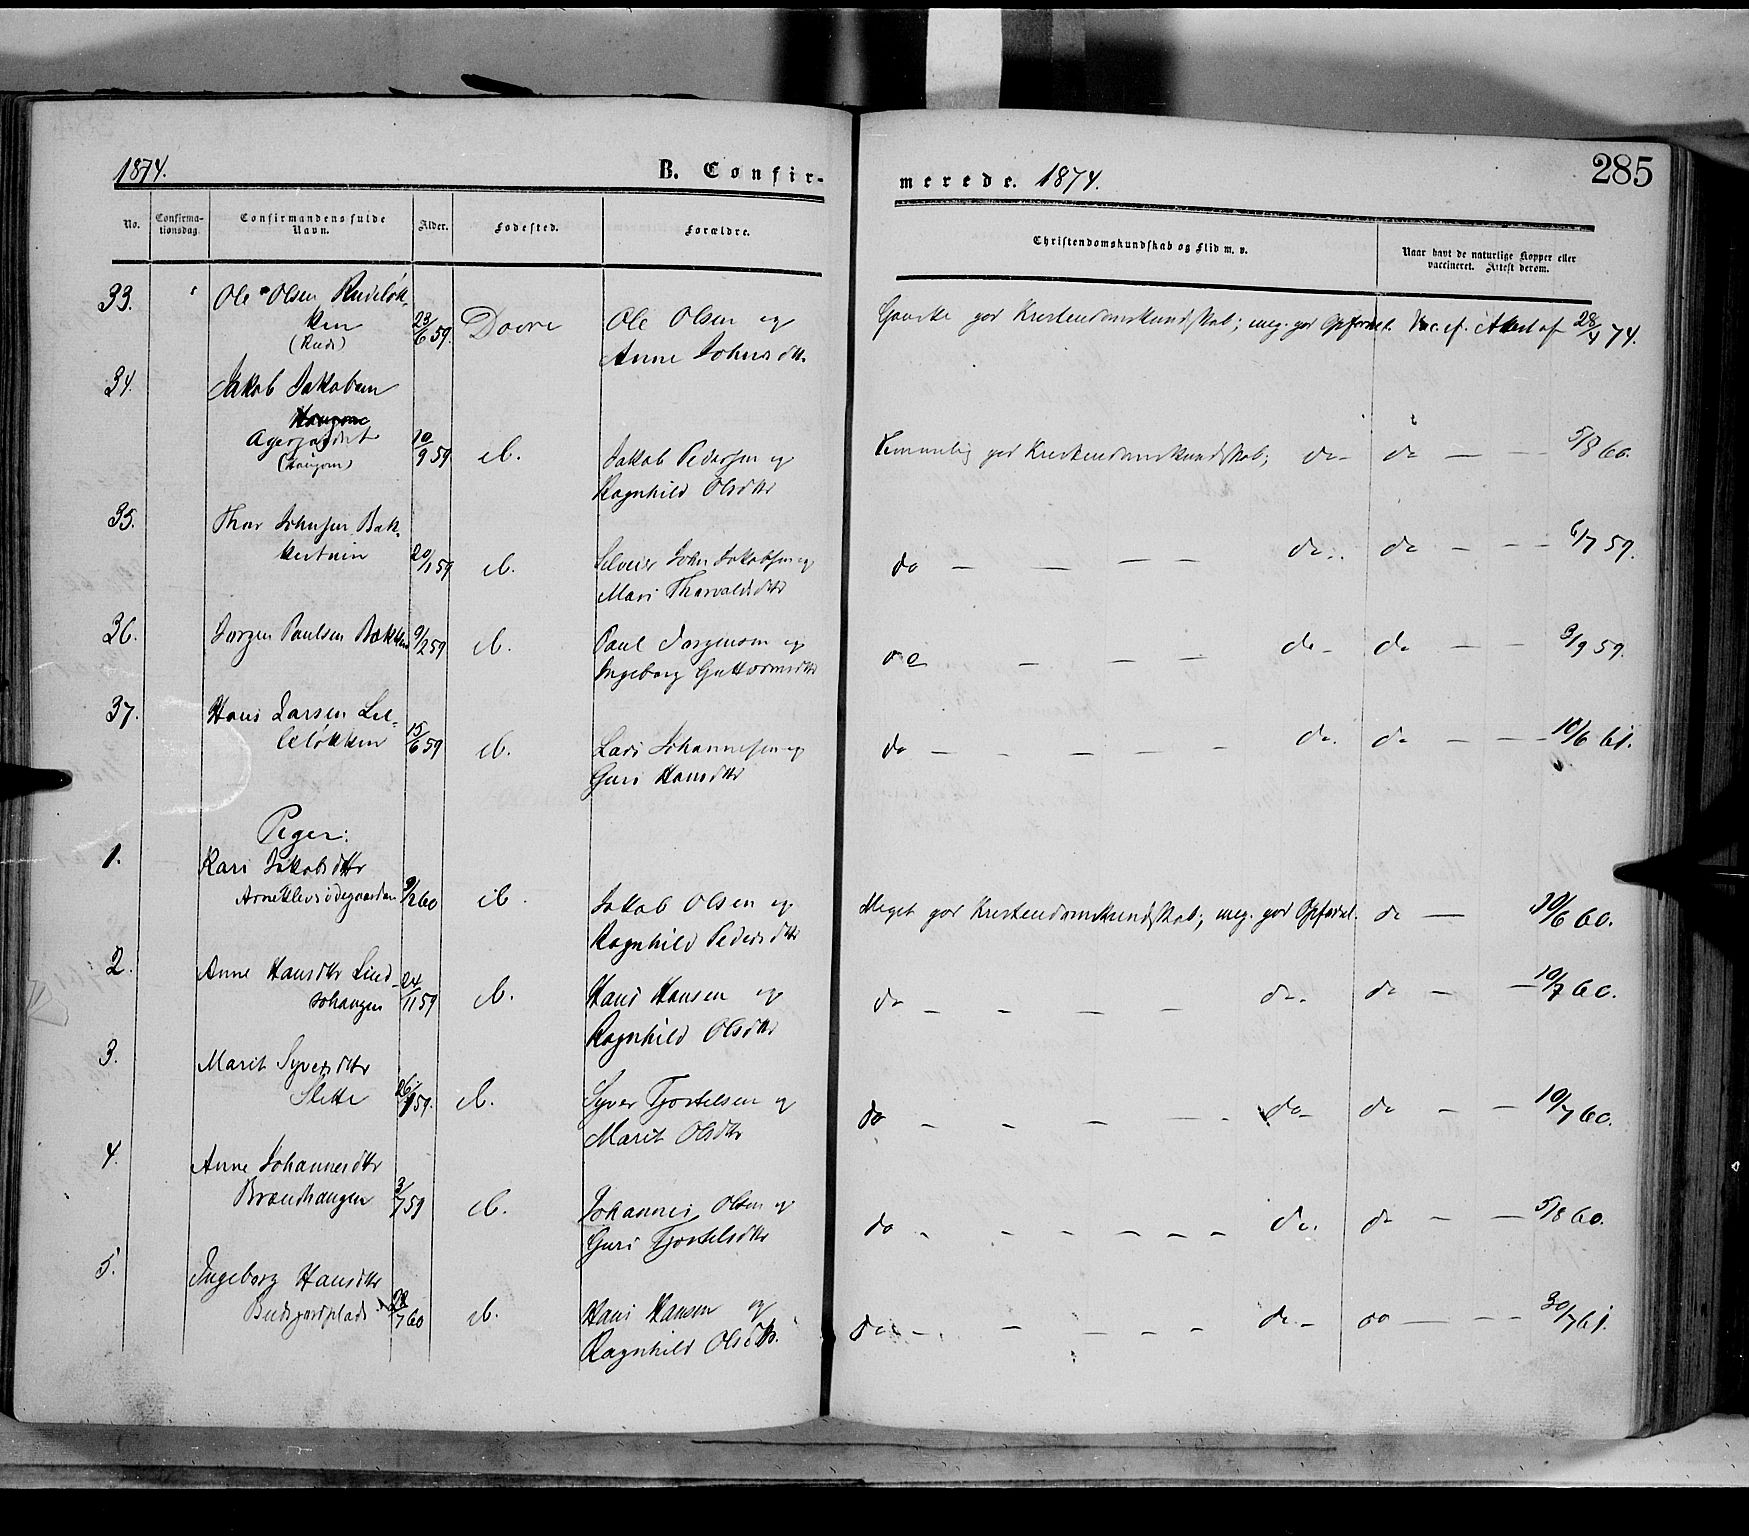 1874.
B. Confir-
merede. 1874.
285
No.
Confirma-
tionsdag.
Confirmandens fulde
Navn.
Alder.
Fødested.
Forældre.
Christendomskundskab og Flid m. v.
Naar havt de naturlige Kopper eller
vaccineret. Attest derom.
33.
Ole Olsen Rudeløk-
ken
(Rudi)
23/6 59.
Dovre
Ole Olsen og
Anne Johnsdtr.
Ganske god Kristendomskundskab; meg. god Opførsel. Vac. ef. Attest af 28/4 74.
34.
Jakob Jakobsen
Agerjordet
(Haugom)
10/9 59
ib.
Jakob Pedersen og
Ragnhild Olsdtr
Temmelig god Kristendomskundskab; do - do — — 5/8 60.
35.
Thor Johnsen Bak-
ketuin
20/1 59
ib.
John Jakobsen og
Mari Thorvaldsdtr
do — — — — do. do — — — 6/7 59.
36.
Jørgen Paulsen Bækken
9/2 59
ib.
Paul Jørgensen og
Ingeborg Guttormsdtr
do — — — do - do — — — 3/9 59.
37.
Hans Larsen Lil-
leløkken
15/6 59
ib.
Lars Johannesen og
Guri Hansdtr
do — — — — — — do. do — — — 10/6 61.
Piger:
1.
Kari Jakobsdtr
Arneklevsødegaarden
9/2 60
ib.
Jakob Olsen og
Ragnhild Pedersdtr
Meget god Kristendomskundskab; meg. god Opførsel. do — 30/6 60.
2.
Anne Hansdtr Lind-
sohaugen
24/11 59
ib.
Hans Hansen og
Ragnhild Olsdtr
do — — — — do. do — — 10/7 60.
3.
Marit Syversdtr
Slette
59.
ib.
Syver Tjostelsen og
Marit Olsdtr
do — — — — — do - do — — 10/7 60.
4.
Anne Johannesdtr
Brændhaugen
3/7 59
ib.
Johannes Olsen og
Guri Tjostelsdtr
do — — — — — — do. do — — 5/8 60.
5.
Ingeborg Hansdtr
60
ib.
Hans Hansen og
Ragnhild Olsdtr.
do — — — — — do - do — — — 30/7 61.